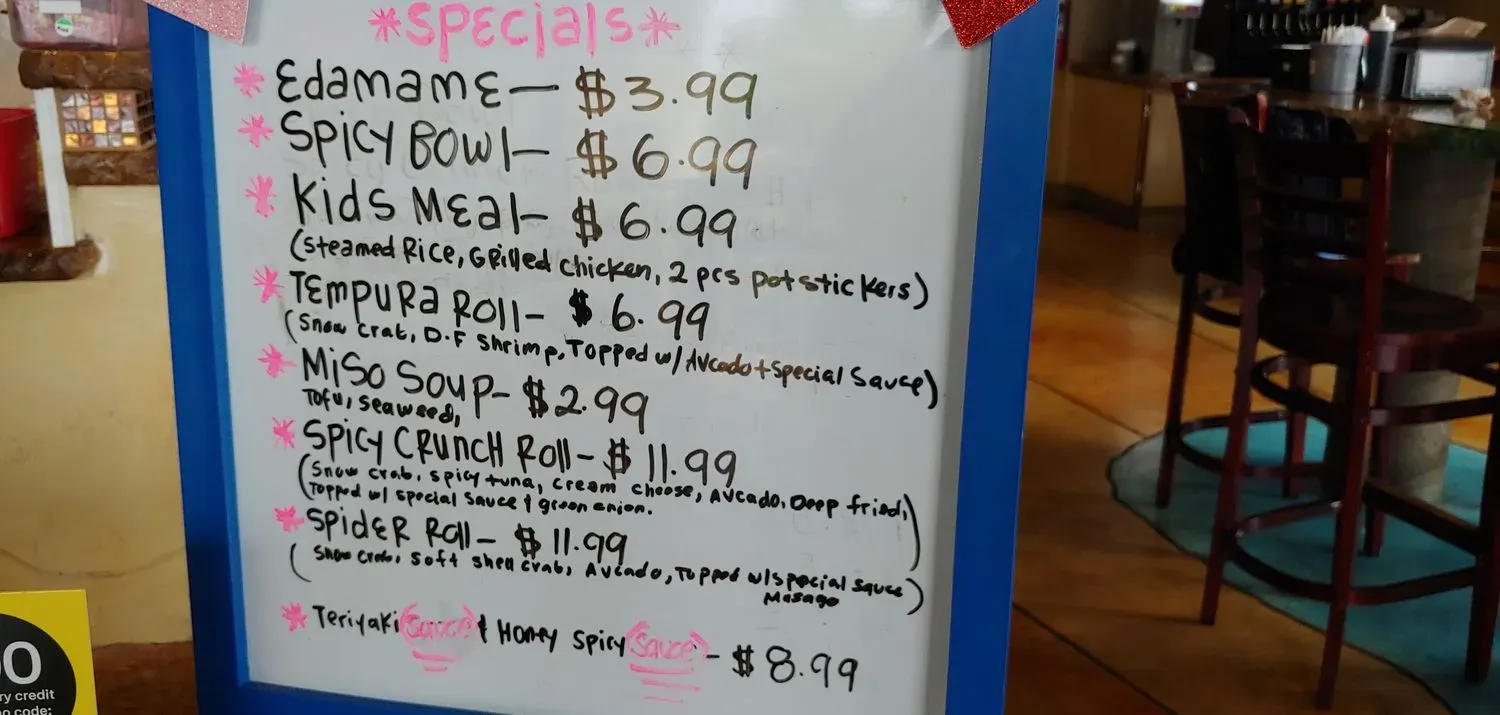 *Specials*
* Edamame - $3.99
* Spicy Bowl - $6.99
* Kids Meal - $6.99
(Steamed Rice, Grilled chicken, 2 pcs potstickers)
* Tempura Roll - $6.99
(Snow Crab, D.F Shrimp, Topped w/ Avcado + Special Sauce)
* Miso Soup - $2.99
Tofu, Seaweed,
* Spicy Crunch Roll - $11.99
(Snow crab, Spicy tuna, cream choose, Avcado, Deep fried,
Topped w/ special Sauce & green onion.)
* Spider Roll - $11.99
(Snow crab, Soft shell crab, Avcado, Topped w/ special sauce
Masago)
* Teriyaki (Sauce) & Honey Spicy (Sauce) - $8.99
ry credit
o code: